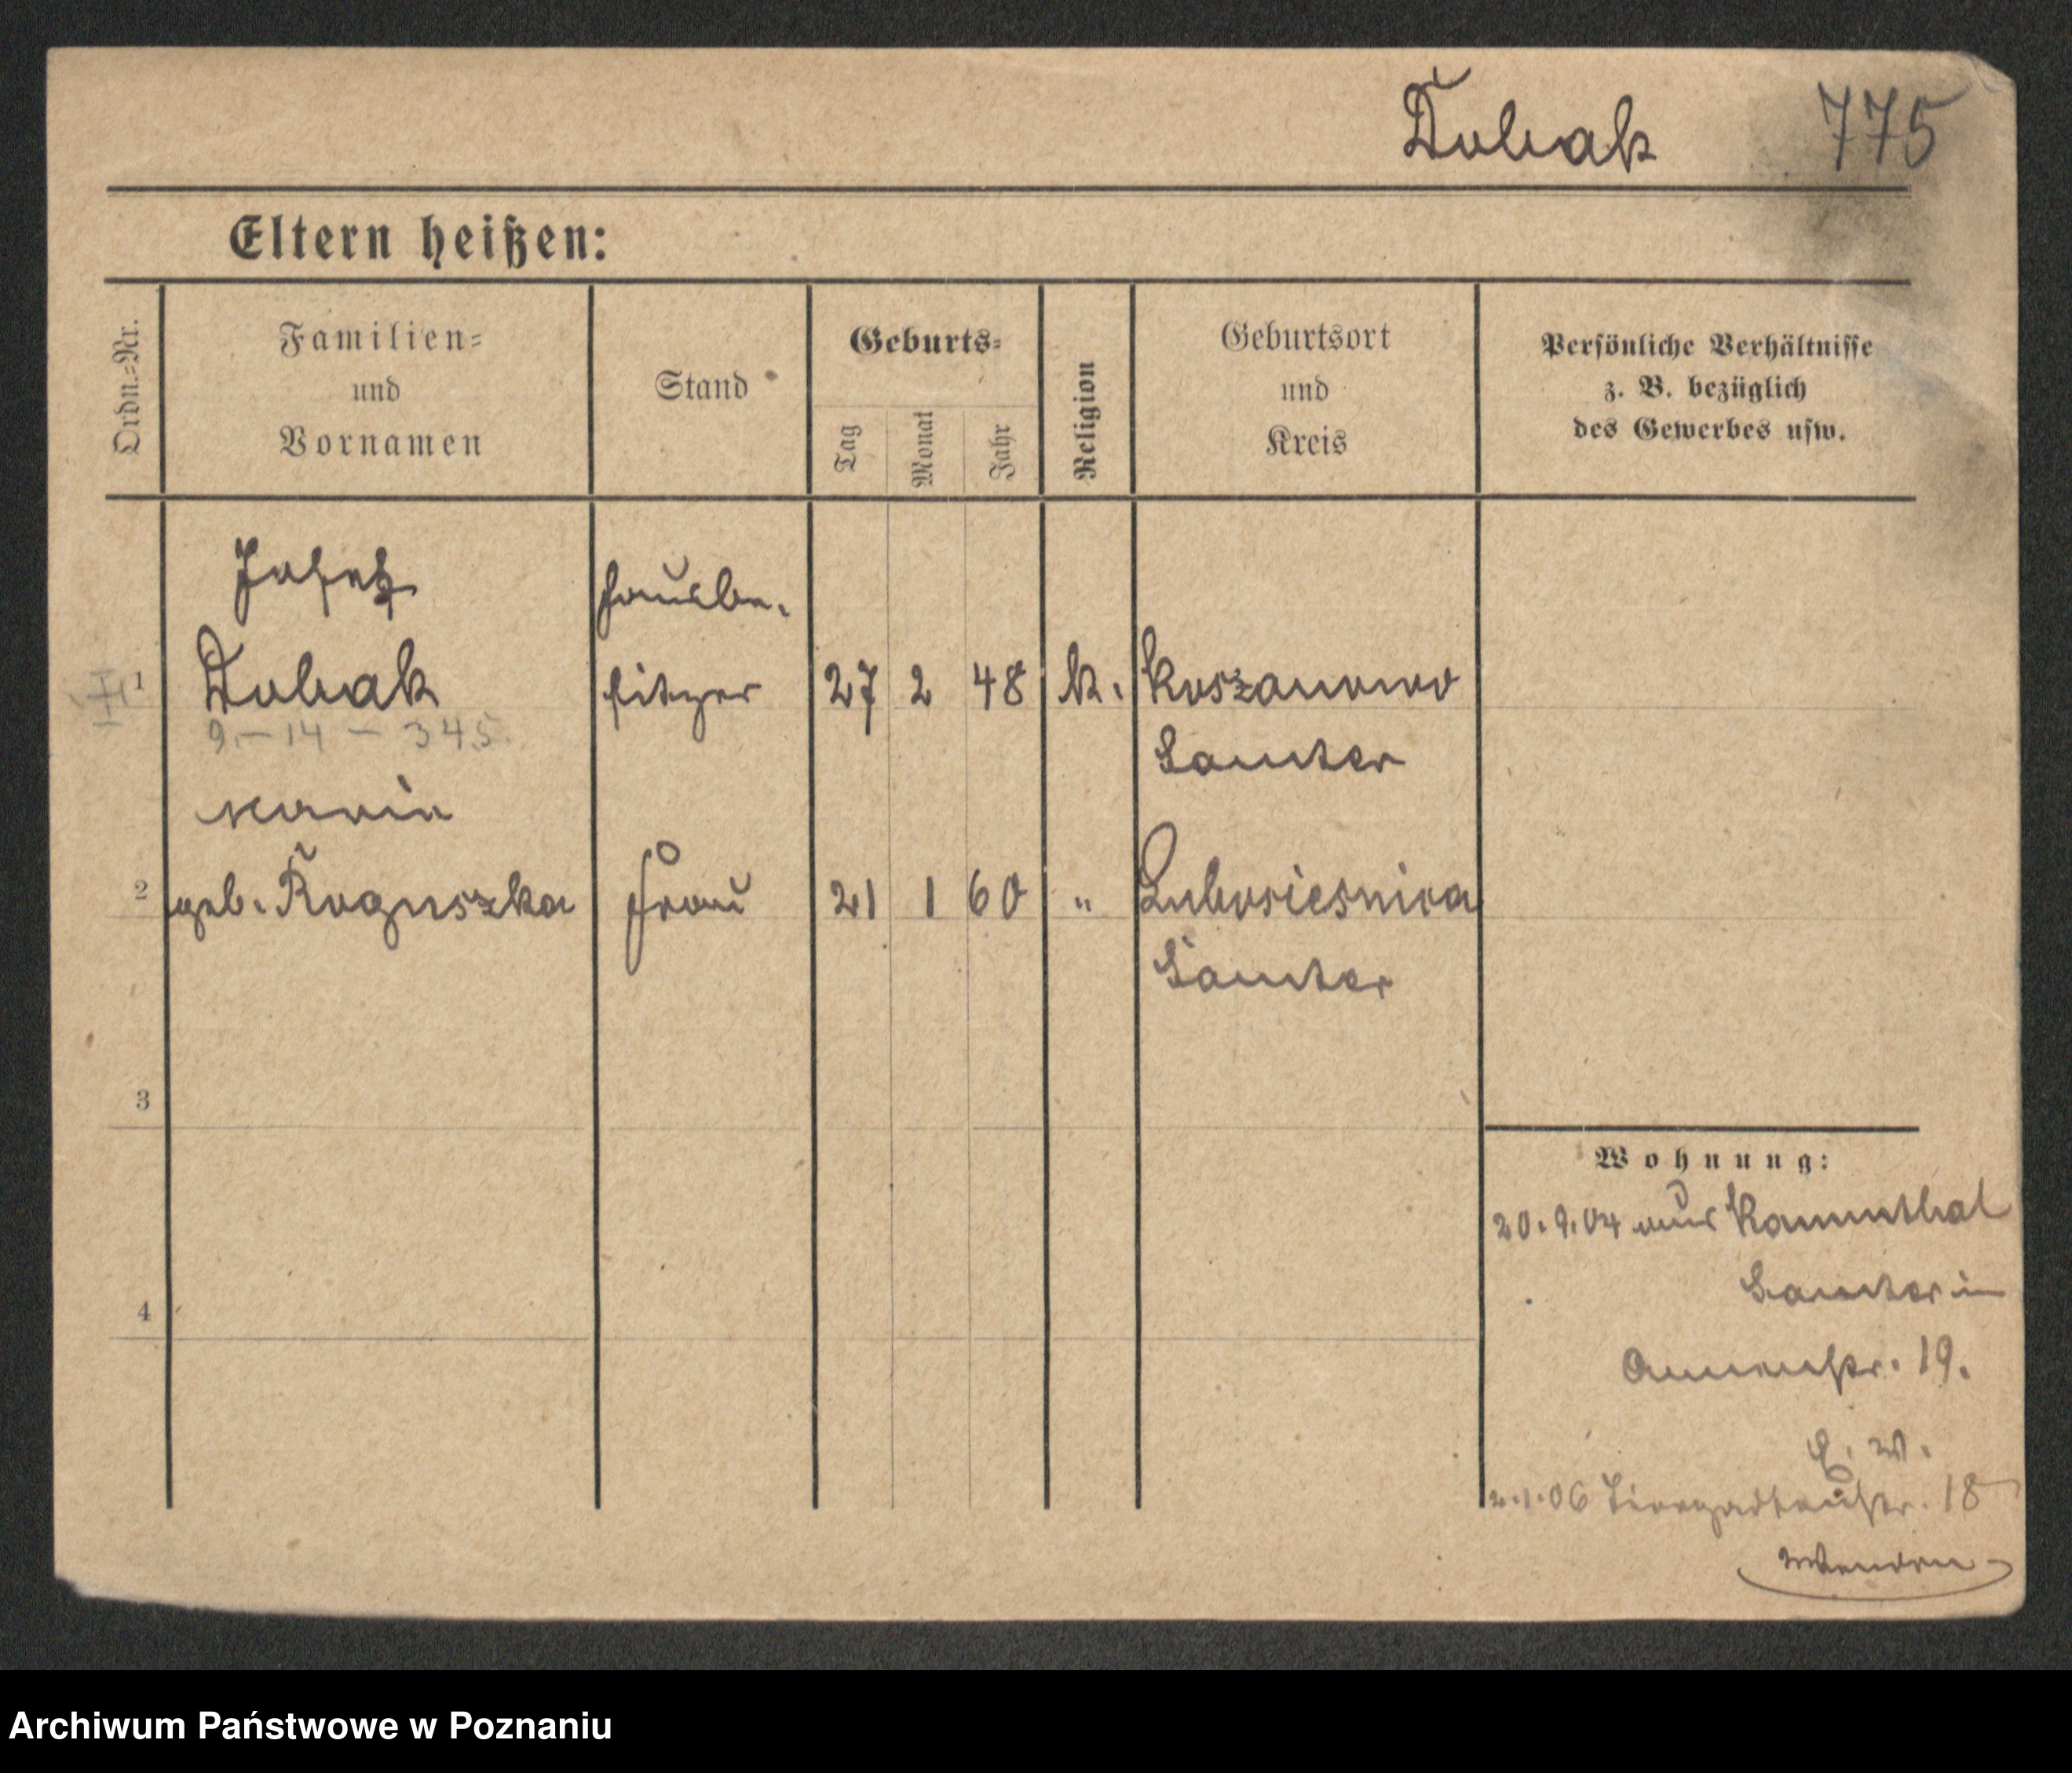 Dubak 775
Eltern heißen:
Ordn.-Nr.
Familien-
und
Vornamen
Stand
Geburts-
Tag
Monat
Jahr
Religion
Geburtsort
und
Kreis
Persönliche Verhältnisse
z. B. bezüglich
des Gewerbes usw.
Josef Hausbe-
1 Dubak sitzer 27 2 48 k. Koszanowo
9.-14-345. Samter
Maria
2 geb. Roguszka Frau 21 1 60 " Lubosiesnica
Samter
3
4
Wohnung:
20.9.04 aus Kammthal
Samter in
Annenstr. 19.
E. W.
2.1.06 18
Archiwum Państwowe w Poznaniu